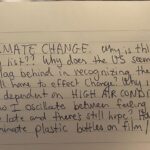 IMATE CHANGE. Why is thi
list?? Why does the US seem
lag behind in recognizing the
ll have to effect Change? Why i
dependent on HIGH AIR CONDI
so I oscillate between feeling
late and there's still hope?
minate plastic bottles on film